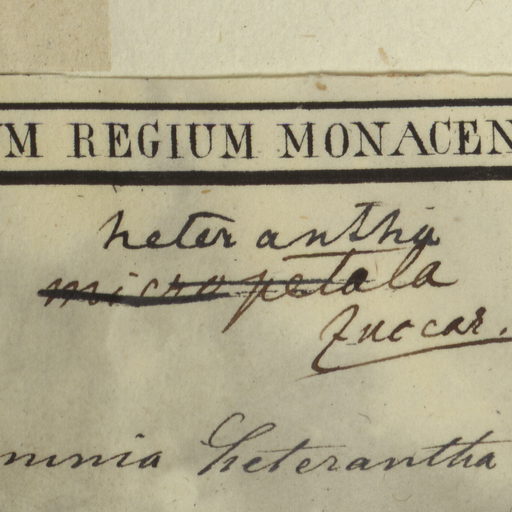 UM REGIUM MONACEN
heterantha
micropetala
Zuccar.
mnia heterantha